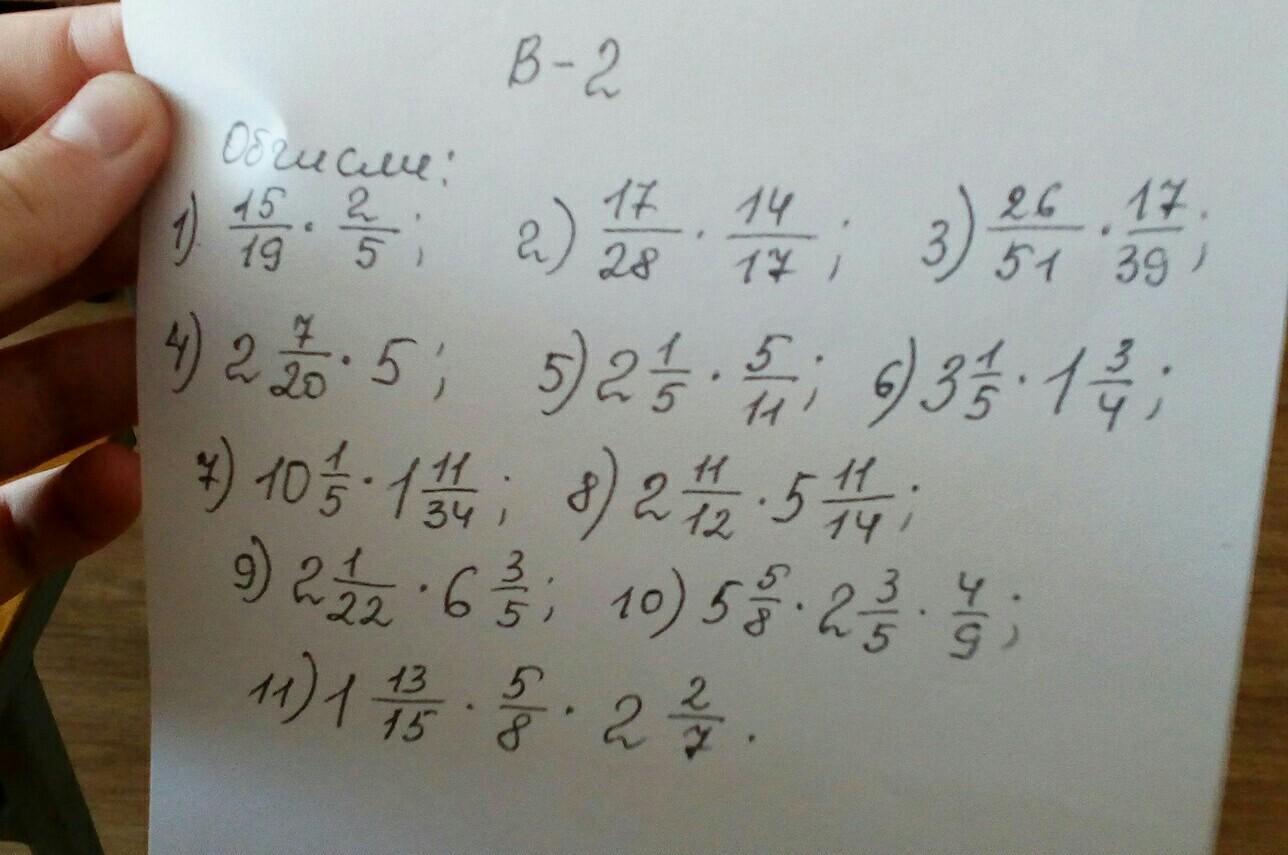 В-2
Обчисли:
1) 15/19 · 2/5; 2) 17/28 · 14/17; 3) 26/51 · 17/39;
4) 2 7/20 · 5; 5) 2 1/5 · 5/11; 6) 3 1/5 · 1 3/4;
7) 10 1/5 · 1 11/34; 8) 2 11/12 · 5 11/14;
9) 2 1/22 · 6 3/5; 10) 5 5/8 · 2 3/5 · 4/9;
11) 1 13/15 · 5/8 · 2 2/7.